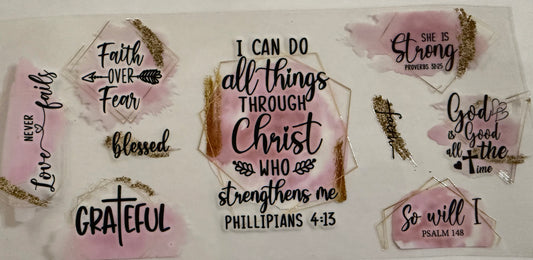 NEVER
Love fails
Faith
OVER
Fear
blessed
GRATEFUL
I CAN DO
all things
THROUGH
Christ
WHO
strengthens me
PHILLIPIANS 4:13
SHE IS
Strong
PROVERBS 31:25
God
is Good
all the
time
So will I
PSALM 148